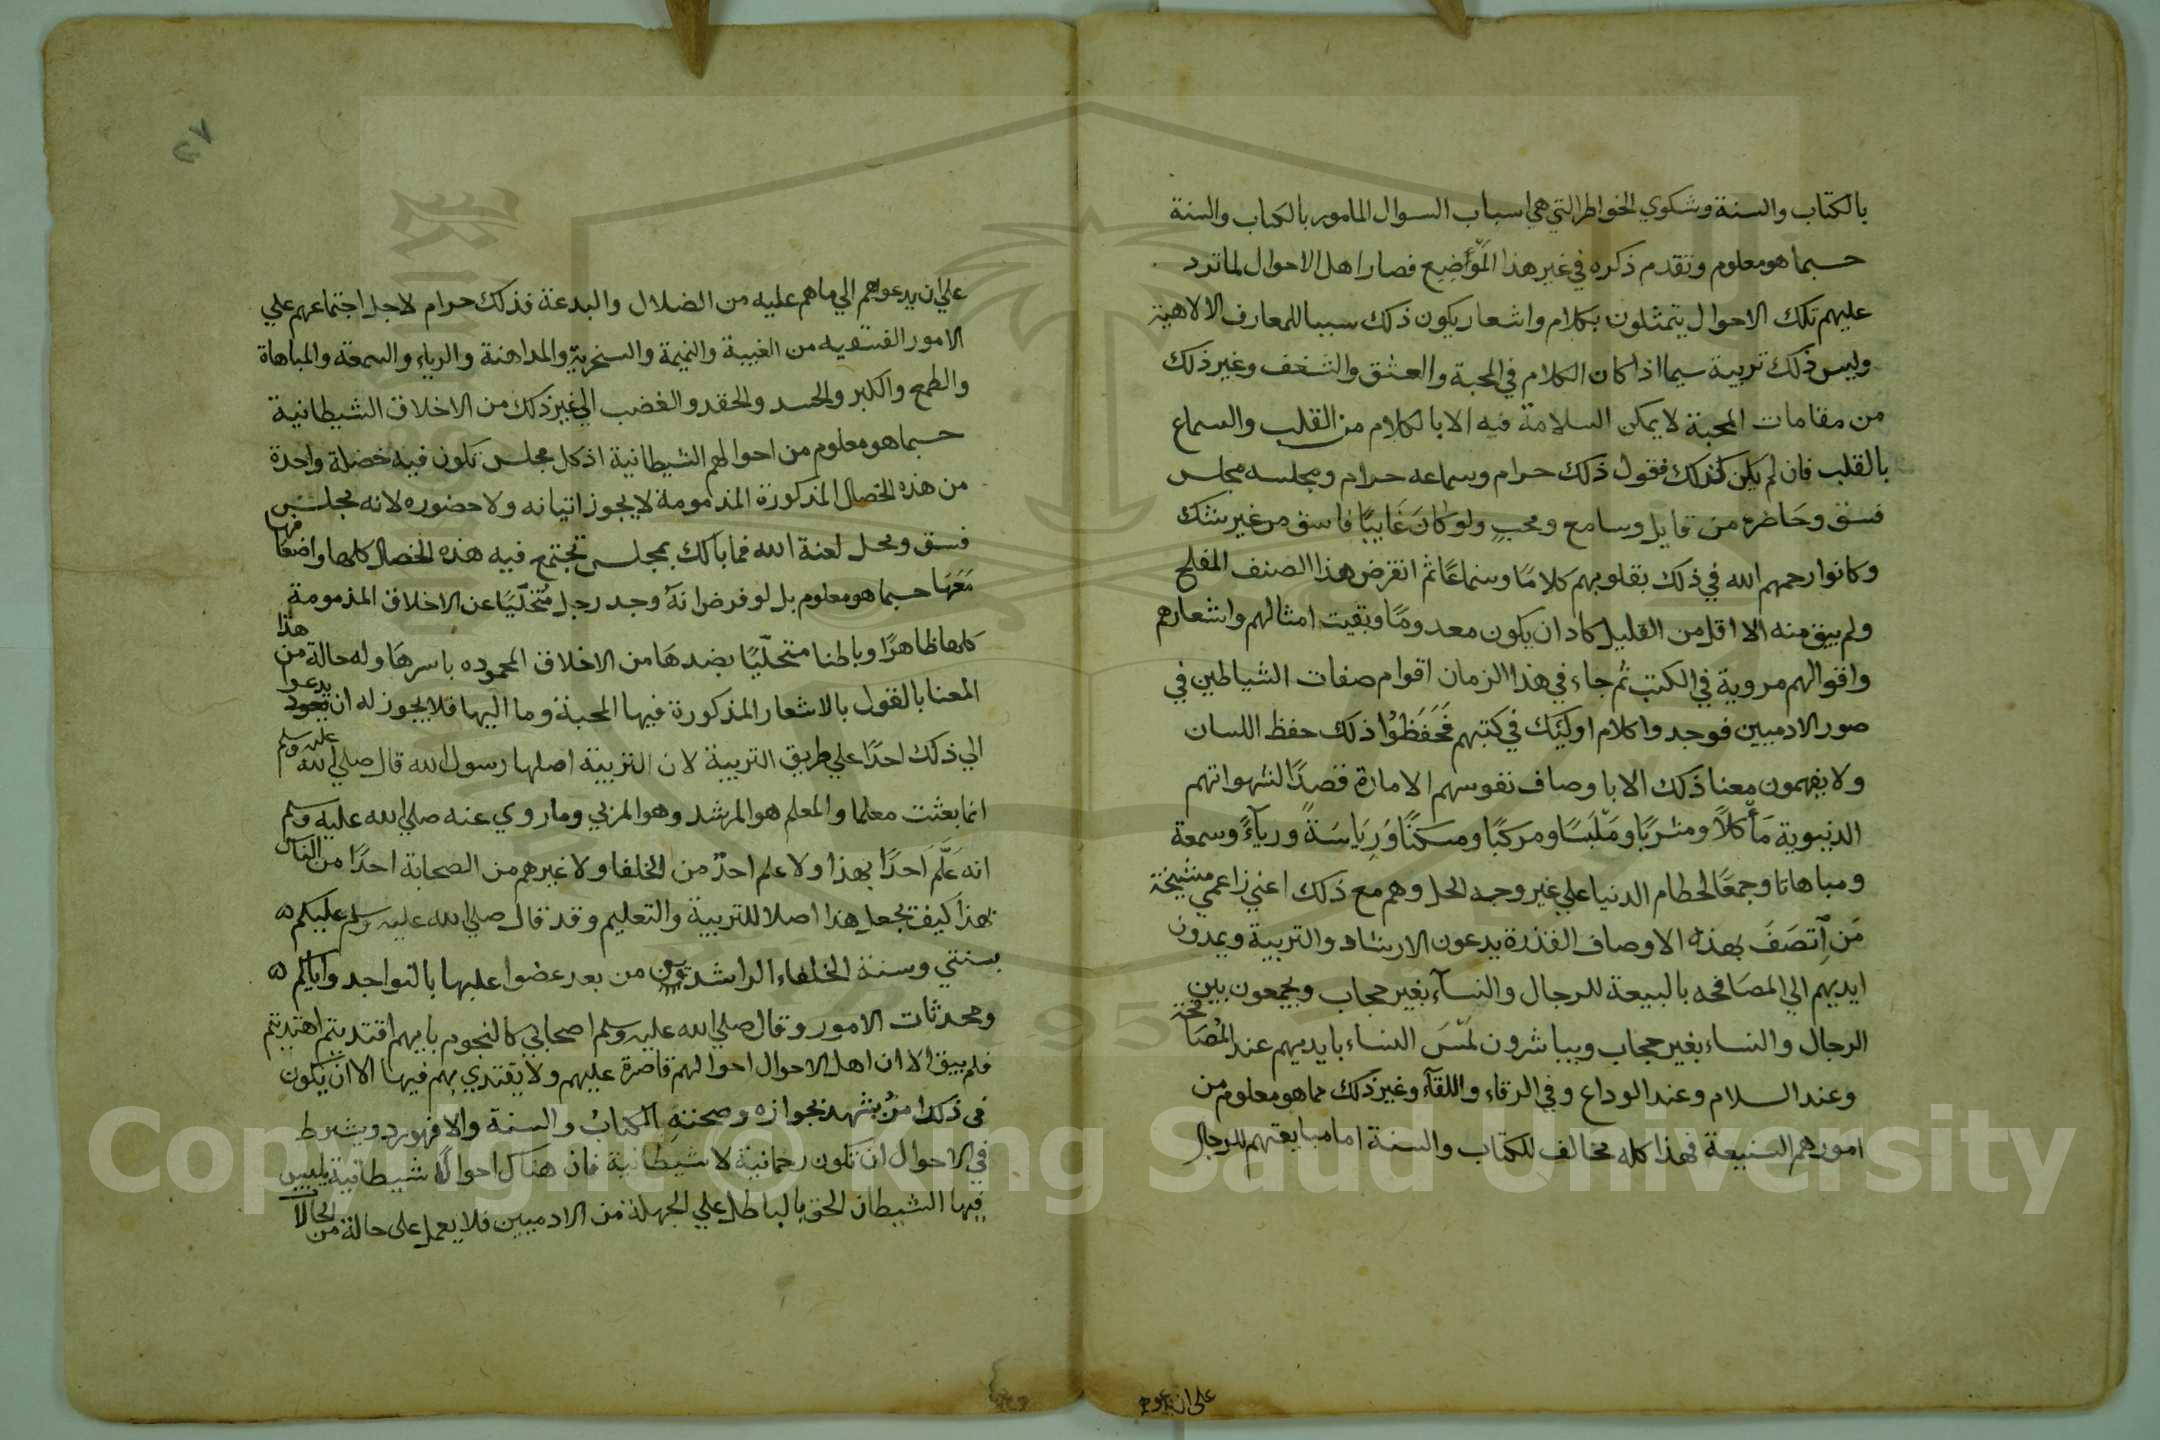 بالكتاب والسنة وشكوي الخواطر التي هي اسباب السوال المامور بالكتاب والسنة
حسبما هو معلوم وتقدم ذكره في غير هذا المواضيع فصار اهل الاحوال لما ترد
عليهم تلك الاحوال يتمثلون بكلام واشعار يكون ذلك سببا للمعارف الالاهية
وليس ذلك تربية سيما اذا كان الكلام في المحبة والعشق والشغف وغير ذلك
من مقامات المحبة لا يمكن السلامة فيه الا بالكلام من القلب والسماع
بالقلب فان لم يكن كذلك فقول ذلك حرام وسماعه حرام ومجلسه مجلس
فسق وحاضره من قايل وسامع ومحب ولو كان غايبا فاسق من غير شك
وكانوا رحمهم الله في ذلك بقلوبهم كلاما وسماعا ثم انقرض هذا الصنف المفلح
ولم يبق منه الا اقل من القليل كاد ان يكون معدوما وبقيت امثالهم واشعارهم
واقوالهم مروية في الكتب ثم جاء في هذا الزمان اقوام صفات الشياطين في
صور الادميين فوجدوا كلام اوليك في كتبهم فحفظوا ذلك حفظ اللسان
ولا يفهمون معنا ذلك الا باوصاف نفوسهم الامارة قصدا لشهواتهم
الدنيوية مأكلا ومشربا وملبسا ومركبا ومسكنا ورياسة ورياء وسمعة
ومباهاتا وجمعا لحطام الدنيا علي غير وجه الحل وهم مع ذلك اعني زاعمي مشيخة
من اتصف بهذه الاوصاف القذرة يدعون الارشاد والتربية ويمدون
ايديهم الي المصافحه بالبيعة للرجال والنسآء بغير حجاب ويجمعون بين
الرجال والنساء بغير حجاب ويباشرون لمس النساء بايديهم عند المصافحة
وعند السلام وعند الوداع وفي الرقاء واللقآء وغير ذلك مما هو معلوم من
امورهم الشنيعة فهذا كله مخالف للكتاب والسنة اما مبايعتهم للرجال
علي ان يدعوهم
علي ان يدعوهم الي ما هم عليه من الضلال والبدعة فذلك حرام لاجل اجتماعهم علي
الامور الفسقيه من الغيبة والنميمة والسخرية والمداهنة والرياء والسمعة والمباهاة
والطمع والكبر والحسد والحقد والغضب الي غير ذلك من الاخلاق الشيطانية
حسبما هو معلوم من احوالهم الشيطانية اذ كل مجلس تكون فيه خصلة واحدة
من هذه الخصال المذكورة المذمومة لا يجوز اتيانه ولا حضوره لانه مجلس
فسق ومحل لعنة الله فما بالك بمجلس تجتمع فيه هذه الخصال كلها واضعافها
معها حسبما هو معلوم بل لو فرض انه وجد رجل متخليا عن الاخلاق المذمومة
كلها ظاهرا وباطنا متحليا بضدها من الاخلاق المحموده باسرها وله حالة من هذا
المعنا بالقول بالاشعار المذكورة فيها المحبة وما اليها فلا يجوز له ان يدعوا
الي ذلك احدا علي طريق التربية لان التربية اصلها رسول الله قال صلي الله عليه وسلم
انما بعثت معلما والمعلم هو المرشد وهو المربي وما روي عنه صلي الله عليه وسلم
انه علم احدا بهذا ولا علم احد من الخلفا ولا غيرهم من الصحابة احدا من الناس
بهذا كيف يجعل هذا اصلا للتربية والتعليم وقد قال صلي الله عليه وسلم عليكم
بسنتي وسنة الخلفاء الراشدين من بعد عضوا عليها بالنواجد واياكم
ومحدثات الامور وقال صلي الله عليه وسلم اصحابي كالنجوم بايهم اقتديتم اهتديتم
فلم يبق الا ان اهل الاحوال احوالهم قاصرة عليهم ولا يقتدي بهم فيها الا ان يكون
في ذلك امر يشهد بجوازه وصحته الكتاب والسنة والا فهو رد ويشرط
في الاحوال ان تكون رحمانية لا شيطانية فان هناك احوالا شيطانية يلبس
فيها الشيطان الحق بالباطل علي الجهلة من الادميين فلا يعمل على حالة من الحالات
Copyright © King Saud University